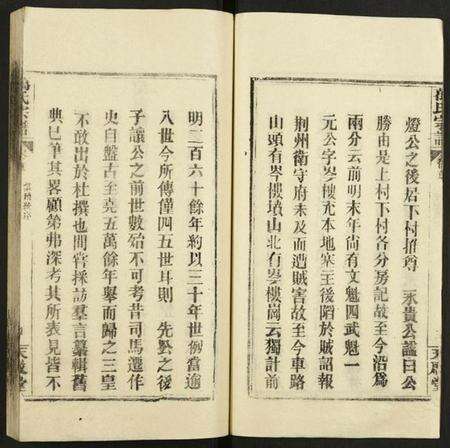 燈公之後居下村推尊　永貴公諡曰公
勝由是上村下村各分房記故至今沿為
兩分云前明末年尚有文魁四武魁一
元公字岑樓充本地寨主後陷於賊詔報
荊州衛守府未及而遭賊害故至今車路
山頭有岑樓墳山北有岑樓崗云獨計前
明二百六十餘年約以三十年世例當逾
八世今所傳僅四五世斗則　先公之後
子讓公之前世數殆不可考昔司馬遷作
史自盤古至堯五萬餘年舉而歸之三皇
不敢出於杜撰也間嘗採訪羣言纂輯舊
典已筆其畧顧第弗深考其所表見皆不
天慶堂